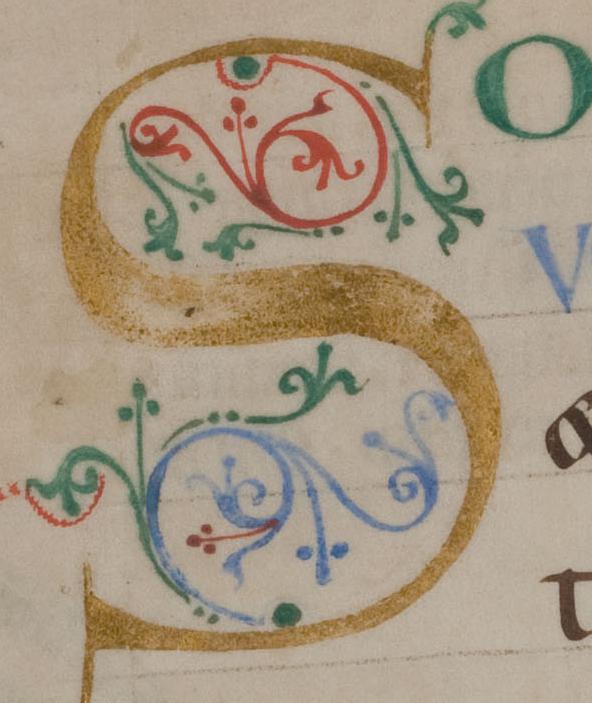 SO
V
œ
t